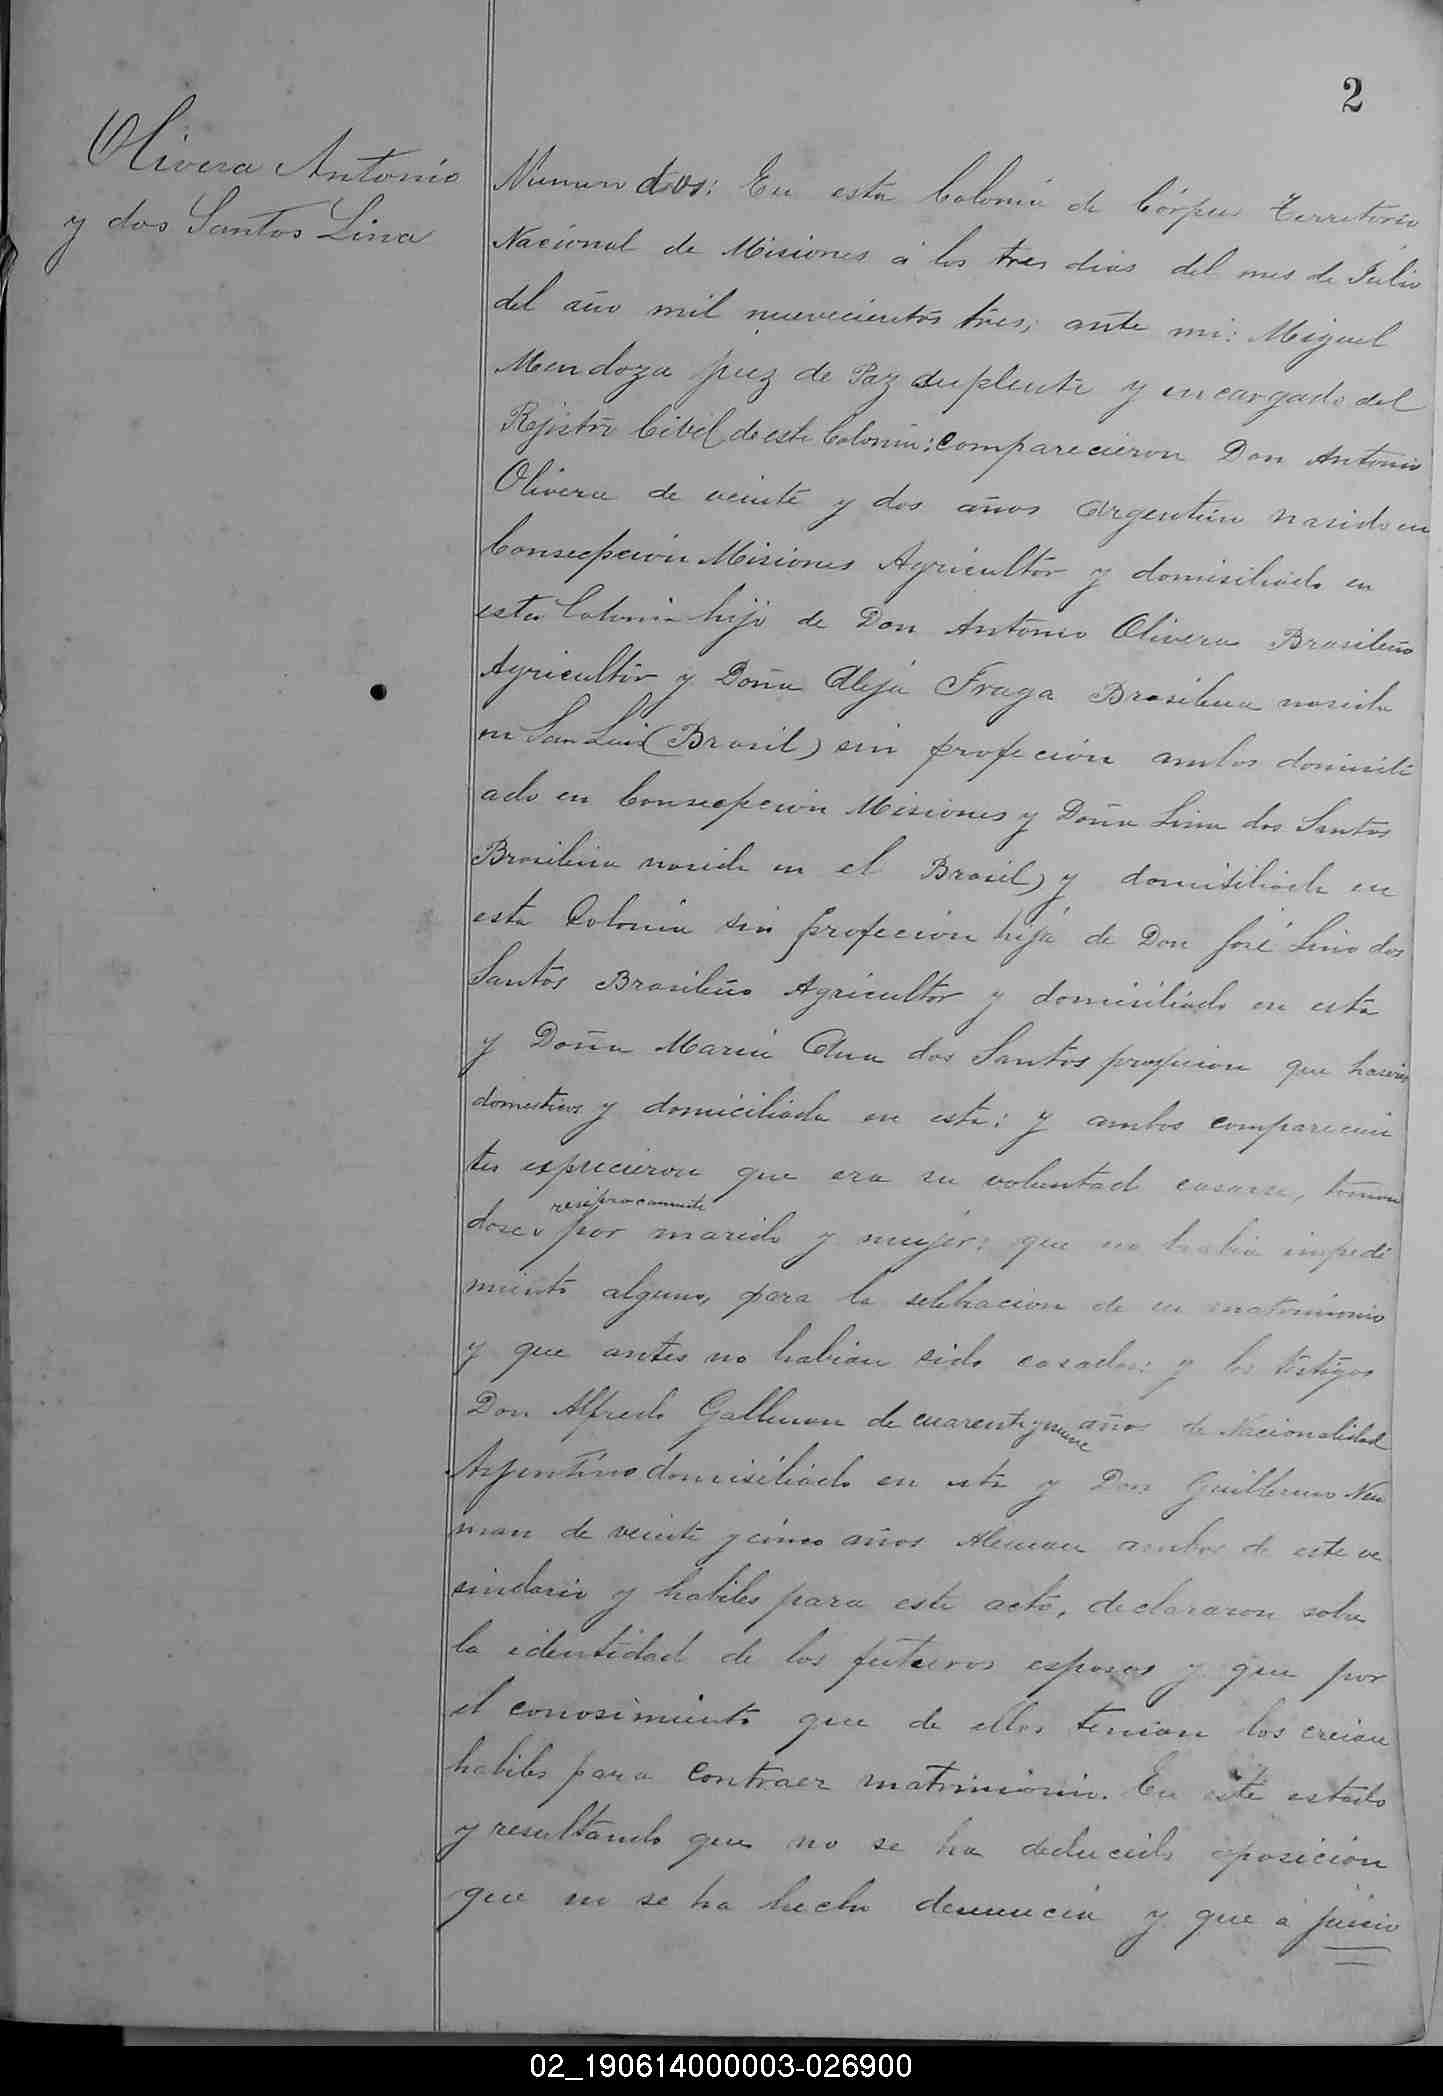 2
Olivera Antonio
y dos Santos Lina
Numero dos: En esta Colonia de Córpus Territorio
Nacional de Misiones á los tres dias del mes de Julio
del año mil nuevecientos tres; ante mi: Miguel
Mendoza juez de Paz suplente y encargado del
Rejistro Cibil de este Colonia: comparecieron Don Antonio
Olivera de veinte y dos años Argentino nasido en
Consepcion Misiones Agricultor y domisiliado en
esta Colonia hijo de Don Antonio Olivera Brasileño
Agricultor y Doña Aleja Fraga Brasilena nasida
en San Luis (Brasil) sin profecion ambos domisili
ado en Consepcion Misiones y Doña Lina dos Santos
Brasilena nasida en el Brasil) y domisiliada en
esta Colonia sin profecion hija de Don José Lino dos
Santos Brasileño Agricultor y domisiliado en esta
y Doña Maria Ana dos Santos profecion que haseres
domesticos y domiciliada en esta: y ambos comparecien
tes exprecieron que era su voluntad casarse, toman
resiprocamente
dose por marido y mujer: que no habia impedi
miento alguno, para la selebracion de su matrimonio
y que antes no habian sido casados: y los testigos
Don Alfredo Gallman de cuarenta y nueve años de Nacionalidad
Argentino domisiliado en esta y Don Guillermo Neu
man de veinte y cinco años Aleman ambos de este ve
sindario y habiles para este acto, declararon sobre
la identidad de los futuros esposos y que por
el conosimiento que de ellos tenian los creian
habiles para contraer matrimonio. En este estado
y resultando que no se ha deducido oposición
que no se ha hecho denuncia y que á juicio
02_190614000003-026900